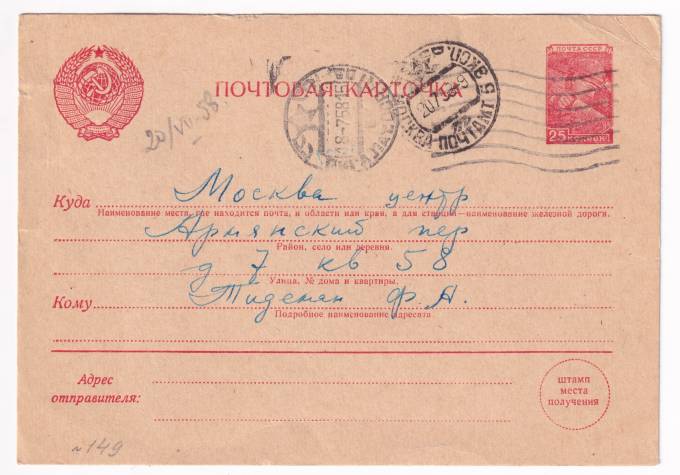 ПОЧТА СССР
25 КОПЕЕК
ПОЧТОВАЯ КАРТОЧКА
20/VII 58
МОСКВА ПОЧТАМТ
Куда Москва центр
Наименование места, где находится почта, и области или края, а для станций—наименование железной дороги.
Армянский пер
Район, село или деревня.
д 7 кв 58
Улица, № дома и квартиры.
Кому Тидеман Ф. А.
Подробное наименование адресата
Адрес
отправителя:
штамп
места
получения
№149